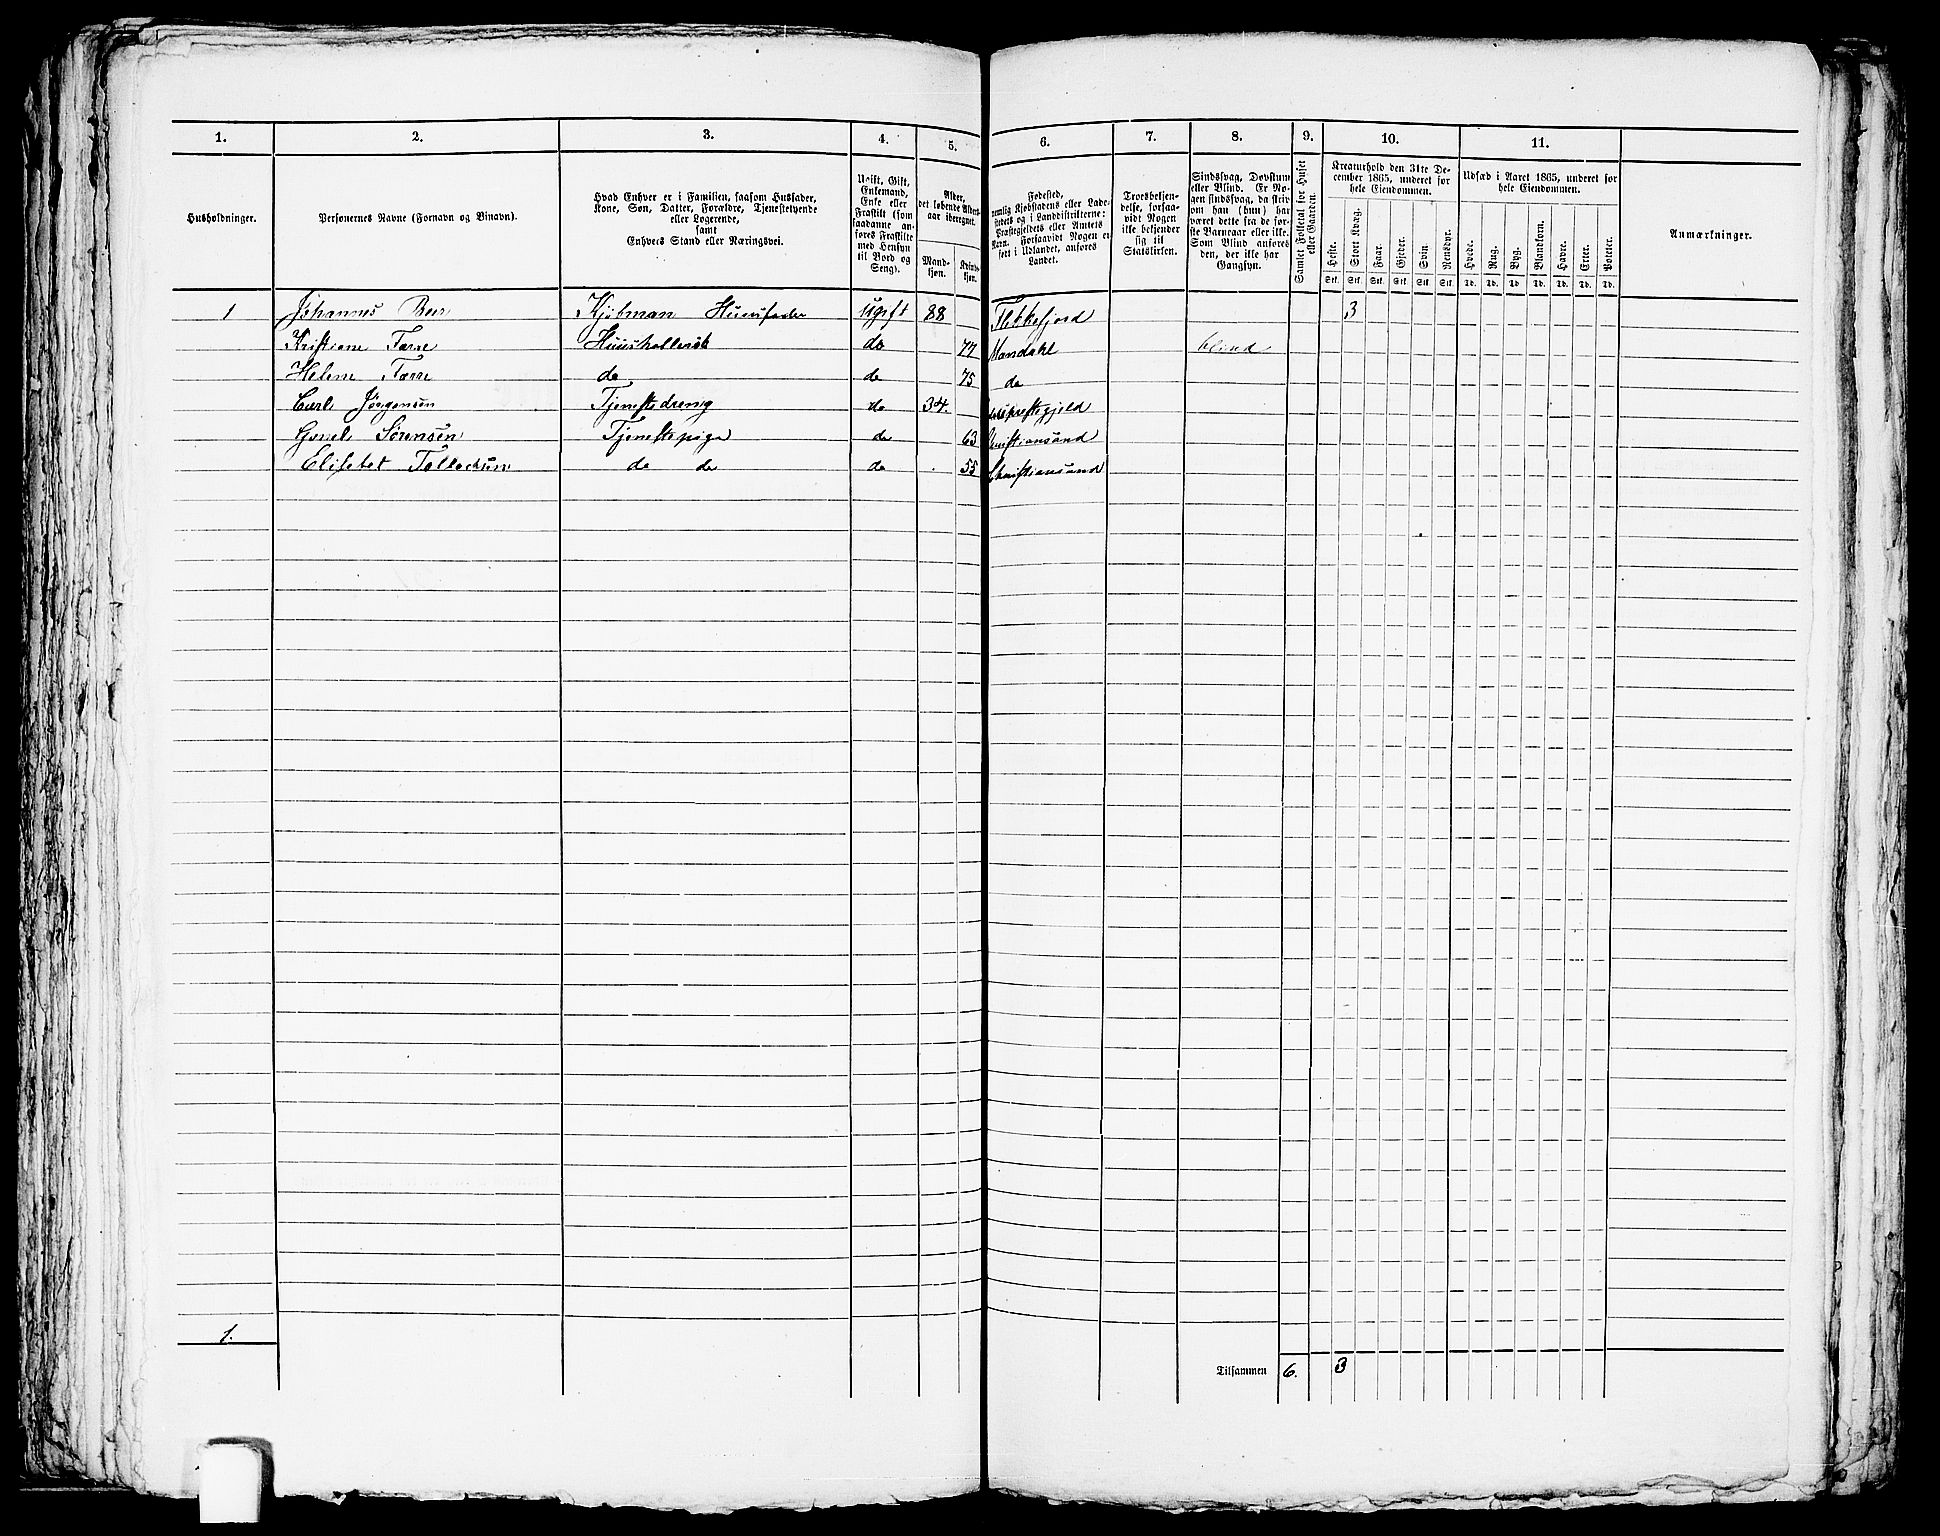 1. 2. 3. 4. 5. 6. 7. 8. 9. 10. 11.
Husholdninger.
Personernes Navne (Fornavn og Binavn).
Hvad Enhver er i Familien, saasom Husfader,
Kone, Søn, Datter, Forældre, Tjenestetyende
eller Logerende,
samt
Enhvers Stand eller Næringsvei.
Ugift, Gift,
Enkemand,
Enke eller
Fraskilt (som
saadanne an-
føres Fraskilte
med Hensyn
til Bord og
Seng).
Alder,
det løbende Alders-
aar iberegnet.
Mand-
kjøn.
Kvinde-
kjøn.
Fødested,
nemlig Kjøbstadens eller Lade-
stedets og i Landdistrikterne:
Præstegjeldets eller Amtets
Navn. Forsaavidt Nogen er
født i Udlandet, anføres
Landet.
Troesbekjen-
delse, forsaa-
vidt Nogen
ikke bekjender
sig til
Statskirken.
Sindssvag, Døvstum
eller Blind. Er No-
gen sindssvag, da skriv
om han (hun) har
været dette fra de før-
ste Barneaar eller ikke.
Som Blind anføres
den, der ikke har
Gangsyn.
Samlet Folketal for Huset
eller Gaarden.
Kreaturhold den 31te De-
cember 1865, underet før
hele Eiendommen.
Heste. Stort Kvæg. Faar. Gjeder. Svin. Rensdyr.
Stk. Stk. Stk. Stk. Stk. Stk.
Udsæd i Aaret 1865, underet før
hele Eiendommen.
Hvede. Rug. Byg. Blandkorn. Havre. Erter. Poteter.
Td. Td. Td. Td. Td. Td. Td.
Anmærkninger.
1 Johannes Beer Kjøbman Huusfader Ugift 88 Flekkefjord 3
Kristiane Tarre do 77 Mandahl blind
Helene Tarre do do 75 do
Carl Jørgensen Tjenestedreng do 34.
Sørensen Tjenestepige do 63
Elisebet do do do 55 Christiansand
1.
Tilsammen 6. 3